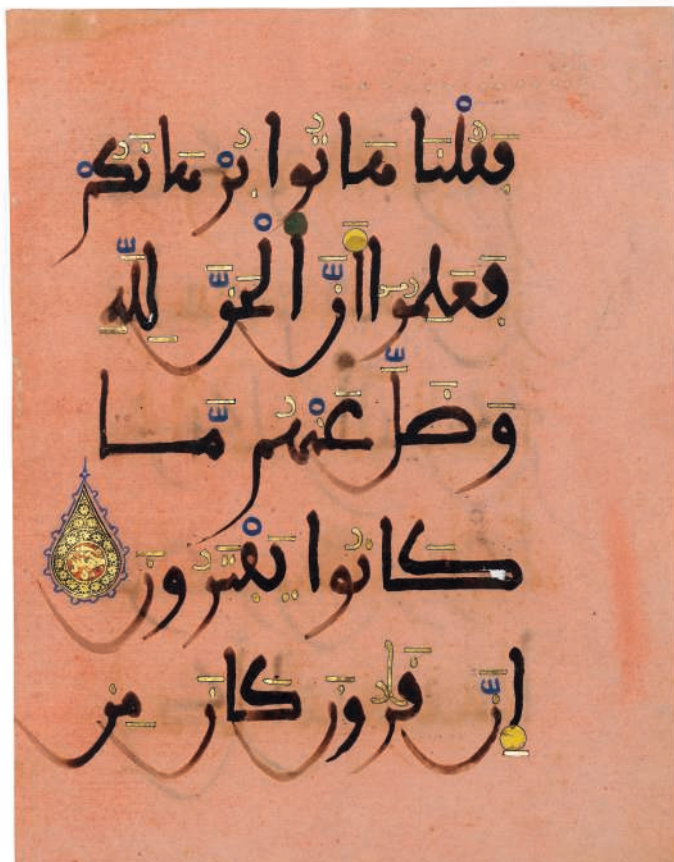 فَقُلْنَا هَاتُوا بُرْهَانَكُمْ
فَعَلِمُوا أَنَّ الْحَقَّ لِلَّهِ
وَضَلَّ عَنْهُم مَّا
كَانُوا يَفْتَرُونَ
إِنَّ قَٰرُونَ كَانَ مِن